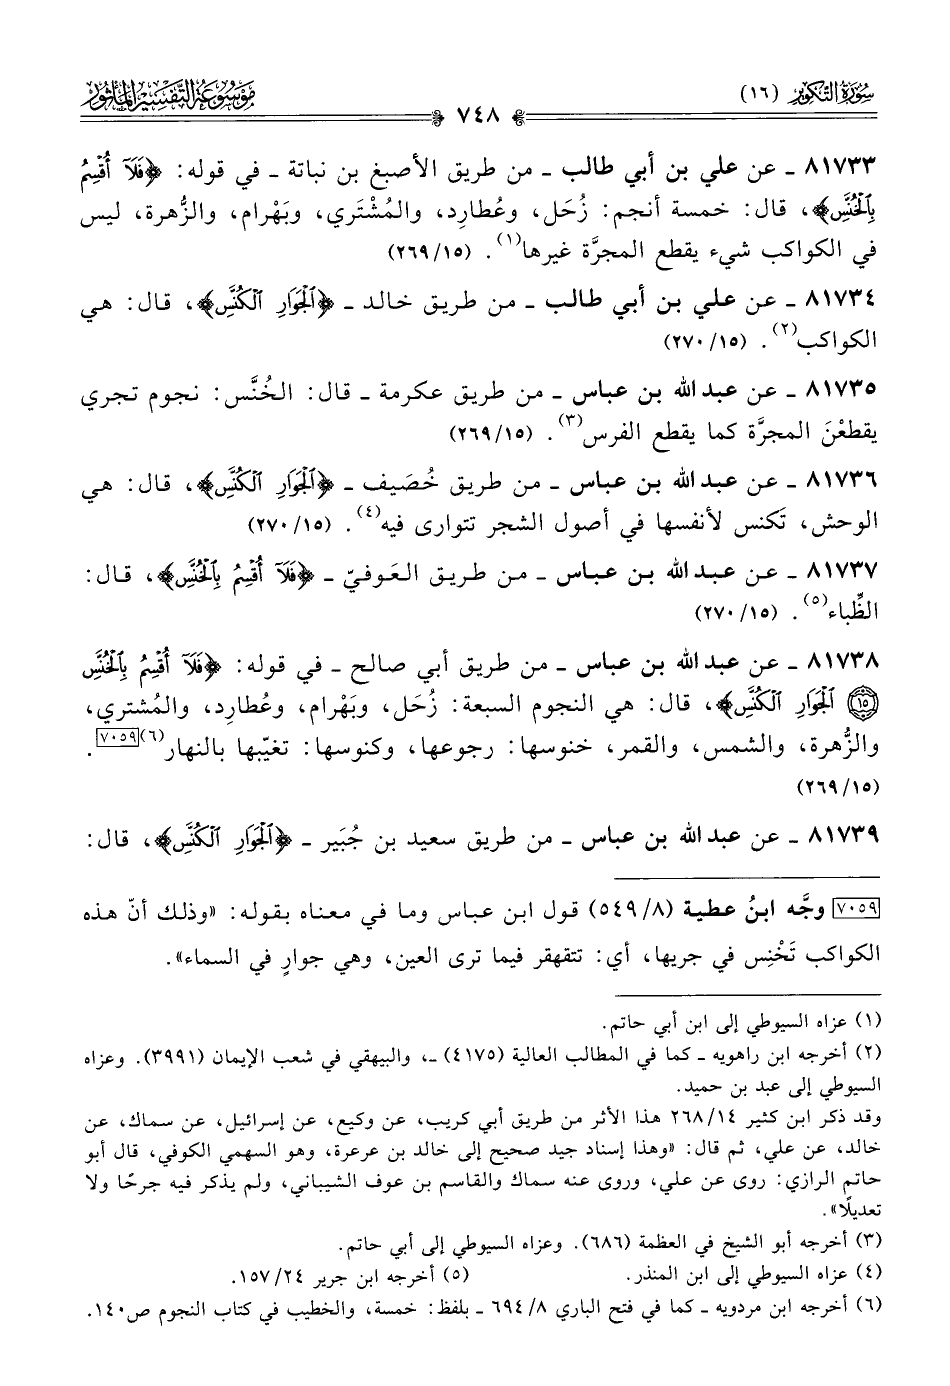 سُورَةُ التَّكْوِير (١٦)
مَوْسُوعَةُ التَّفْسِيرِ المَأْثُورِ
٧٤٨
٨١٧٣٣ ـ عن علي بن أبي طالب ـ من طريق الأصبغ بن نباتة ـ في قوله: ﴿فَلَآ أُقْسِمُ
بِٱلْخُنَّسِ﴾، قال: خمسة أنجم: زُحَل، وعُطارِد، والمُشْتَري، وبَهْرام، والزُّهرة، ليس
في الكواكب شيء يقطع المجرَّة غيرها(١). (٢٦٩/١٥)
٨١٧٣٤ ـ عن علي بن أبي طالب ـ من طريق خالد ـ ﴿ٱلْجَوَارِ ٱلْكُنَّسِ﴾، قال: هي
الكواكب(٢). (٢٧٠/١٥)
٨١٧٣٥ ـ عن عبد الله بن عباس ـ من طريق عكرمة ـ قال: الخُنَّس: نجوم تجري
يقطعْنَ المجرَّة كما يقطع الفرس(٣). (٢٦٩/١٥)
٨١٧٣٦ ـ عن عبد الله بن عباس ـ من طريق خُصَيف ـ ﴿ٱلْجَوَارِ ٱلْكُنَّسِ﴾، قال: هي
الوحش، تَكنس لأنفسها في أصول الشجر تتوارى فيه(٤). (٢٧٠/١٥)
٨١٧٣٧ ـ عن عبد الله بن عباس ـ من طريق العَوفيّ ـ ﴿فَلَآ أُقْسِمُ بِٱلْخُنَّسِ﴾، قال:
الظِّباء(٥). (٢٧٠/١٥)
٨١٧٣٨ ـ عن عبد الله بن عباس ـ من طريق أبي صالح ـ في قوله: ﴿فَلَآ أُقْسِمُ بِٱلْخُنَّسِ
١٥ ٱلْجَوَارِ ٱلْكُنَّسِ﴾، قال: هي النجوم السبعة: زُحَل، وبَهْرام، وعُطارِد، والمُشتري،
والزُّهرة، والشمس، والقمر، خنوسها: رجوعها، وكنوسها: تغيّبها بالنهار(٦)[٧٠٥٩].
(٢٦٩/١٥)
٨١٧٣٩ ـ عن عبد الله بن عباس ـ من طريق سعيد بن جُبَير ـ ﴿ٱلْجَوَارِ ٱلْكُنَّسِ﴾، قال:
[٧٠٥٩] وجَّه ابنُ عطية (٥٤٩/٨) قول ابن عباس وما في معناه بقوله: «وذلك أنّ هذه
الكواكب تَخْنِس في جريها، أي: تتقهقر فيما ترى العين، وهي جوارٍ في السماء».
(١) عزاه السيوطي إلى ابن أبي حاتم.
(٢) أخرجه ابن راهويه ـ كما في المطالب العالية (٤١٧٥) ـ، والبيهقي في شعب الإيمان (٣٩٩١). وعزاه
السيوطي إلى عبد بن حميد.
وقد ذكر ابن كثير ٢٦٨/١٤ هذا الأثر من طريق أبي كريب، عن وكيع، عن إسرائيل، عن سماك، عن
خالد، عن علي، ثم قال: «وهذا إسناد جيد صحيح إلى خالد بن عرعرة، وهو السهمي الكوفي، قال أبو
حاتم الرازي: روى عن علي، وروى عنه سماك والقاسم بن عوف الشيباني، ولم يذكر فيه جرحًا ولا
تعديلًا».
(٣) أخرجه أبو الشيخ في العظمة (٦٨٦). وعزاه السيوطي إلى أبي حاتم.
(٤) عزاه السيوطي إلى ابن المنذر. (٥) أخرجه ابن جرير ١٥٧/٢٤.
(٦) أخرجه ابن مردويه ـ كما في فتح الباري ٦٩٤/٨ ـ بلفظ: خمسة، والخطيب في كتاب النجوم ص١٤٠.